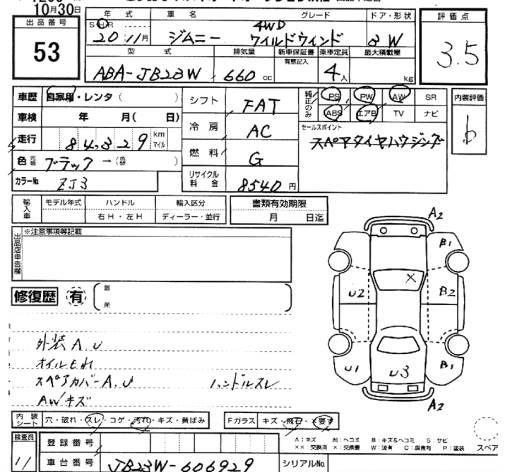 10月30日
出品番号
53
年式 車名 グレード ドア・形状
S・H・R
20年11月 ジムニー 4WD
ワイルドウィンド 3W
型式 排気量 新車保証書 乗車定員 最大積載量
有意記入
ABA-JB23W 660cc 4人 kg
評価点
3.5
車歴 自家用・レンタ( )
車検 年 月( 日)
走行 84,329 km マイル
色 ブラック→
カラーNo ZJ3
シフト FAT
冷房 AC
燃料 G
リサイクル料金 8540円
純正のみ
PS PW AW SR
ABS エアB TV ナビ
セールスポイント
スペアタイヤハウジング
内装評価
b
輸入車 モデル年式 ハンドル 輸入区分
右H・左H ディーラー・並行
書類有効期限
月 日迄
※注意事項等記載
修復歴 有
箇所
外装A.U
オイルモレ
スペアカバーA.U ハンドルスレ
AWキズ
A2
B1
U2
B2
U1
U3
B1
A2
内装シート 穴・破れ・スレ・コゲ・汚れ・キズ・黄ばみ
Fガラス キズ・飛石・X要す
検査員
11
登録番号
車台番号 JB23W-606929
シリアルNo.
A:キズ B:キズ&ヘコミ S サビ
XX 交換済 X 交換要 P:塗装
スペア